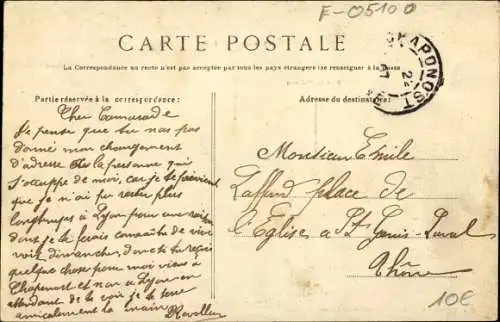 F-05100
CARTE POSTALE
CHAPONOST
La Correspondance au recto n'est pas acceptée par tous les pays étrangers (se renseigner à la Poste
Partie réservée à la correspondance:
Adresse du destinataire:
Cher Camarade
Je pense que tu n'as pas
donné mon changement
d'adresse à la personne qui
s'occupe de moi, car je te préviens
que je n'ai pu rester plus
longtemps à Lyon pour
dont je te ferais connaître de vive
voix dimanche, donc si tu reçois
quelque chose pour moi viens à
Chaponost et non à Lyon en
attendant de te voir je te serre
amicalement la main
Revollin
Monsieur Emile
Laffard place de
l'Eglise à St Genis-Laval
Rhône
10€